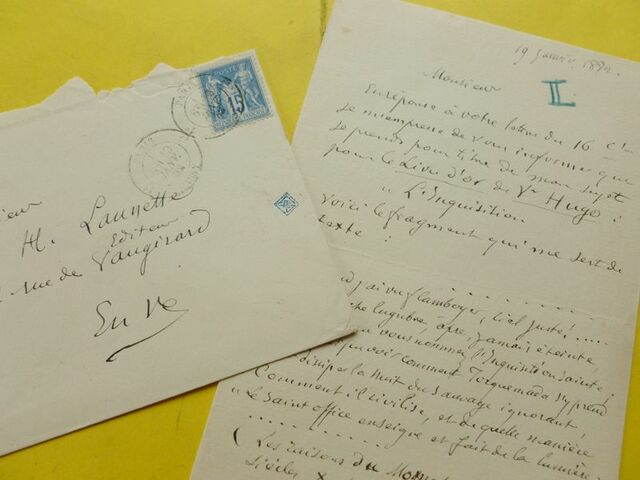 M. Launette
Editeur
rue de Vaugirard
En Ve
15
19 Janvier 1882.
II
Monsieur
En réponse à votre lettre du 16 ct
je m'empresse de vous informer que
je prends pour titre de mon sujet
pour le Livre d'or de Vor Hugo :
"L'Inquisition
Voici le fragment qui me sert de
texte :
j'ai vu flamboyer, ciel juste! .....
lugubre, âpre, jamais éteinte,
vous nommez l'Inquisition sainte!
voir comment Torquemada s'y prend
dissiper la nuit du sauvage ignorant,
Comment il civilise, et de quelle manière
"Le Saint office enseigne et fait de la lumière:
(Les raisons du
siècles